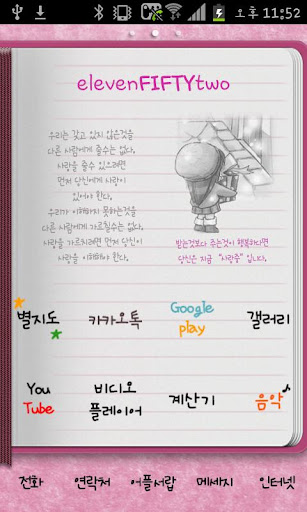 오후 11:52
elevenFIFTYtwo
우리는 갖고 있지 않은것을
다른 사람에게 줄수는 없다.
사랑을 줄수 있으려면
먼저 당신에게 사랑이
있어야 한다.
우리가 이해하지 못하는것을
다른 사람에게 가르칠수는 없다.
사랑을 가르치려면 먼저 당신이
사랑을 이해해야 한다.
받는것보다 주는것이 행복하다면
당신은 지금 "사랑중" 입니다.
별지도
카카오톡
Google
play
갤러리
You
Tube
비디오
플레이어
계산기
음악
전화
연락처
어플서랍
메세지
인터넷